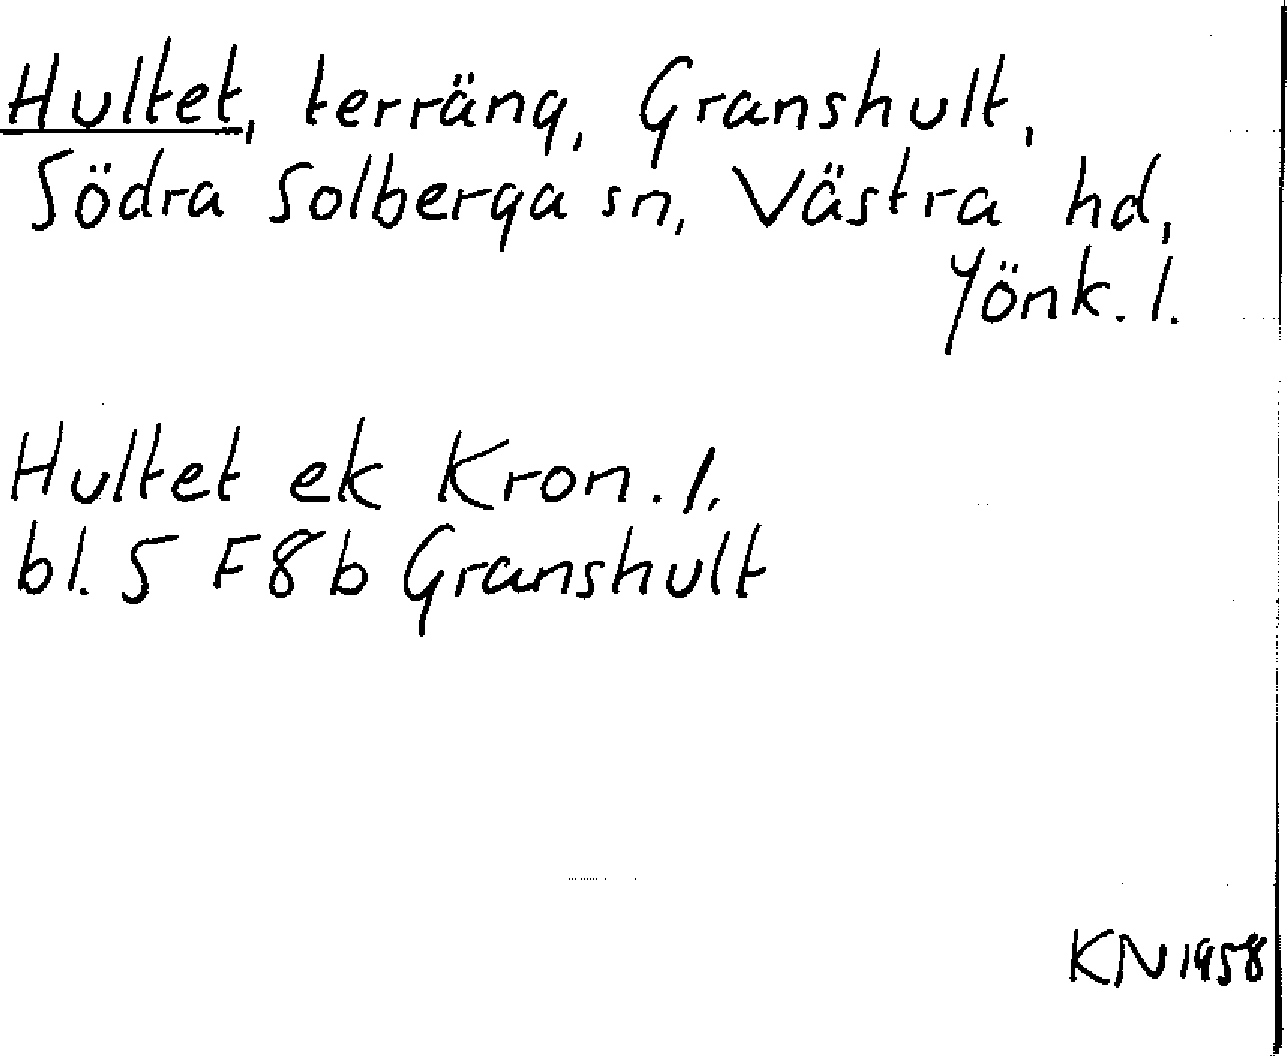 Hultet, terräng, Granshult,
Södra Solberga sn, Västra hd,
Jönk. l.
Hultet ek Kron. l.
bl. 5 F 8 b Granshult
KN 1958